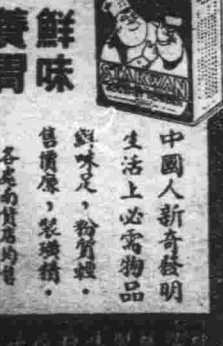 鮮味
養胃
中國人新奇發明
生活上必需物品
鮮味足，粉質輕。
售價廉，裝璜精。
各處南貨店均售